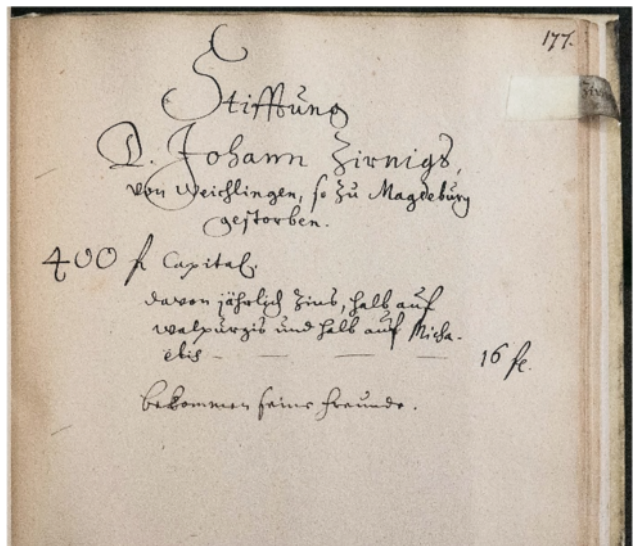 177.
Stifftung
D. Johann Zirnigs,
von Weichlingen, so zu Magdeburg
gestorben.
400 fl Capital.
davon jährlich Zins, halb auf
Walpurgis und halb auf Micha-
elis - — — —
16 fl.
bekommen seine Freunde.